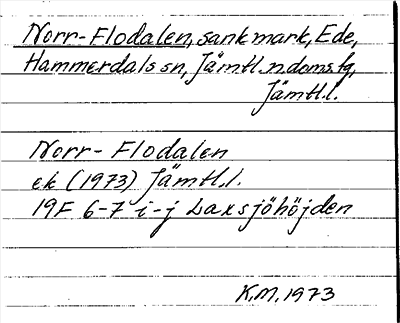 Norr-Flodalen, sankmark, Ede,
Hammerdals sn, Jämtl. n. doms. tg,
Jämtl.l.
Norr- Flodalen
ek (1973) Jämtl.l.
19F 6-7 i-j Laxsjöhöjden
K.M. 1973